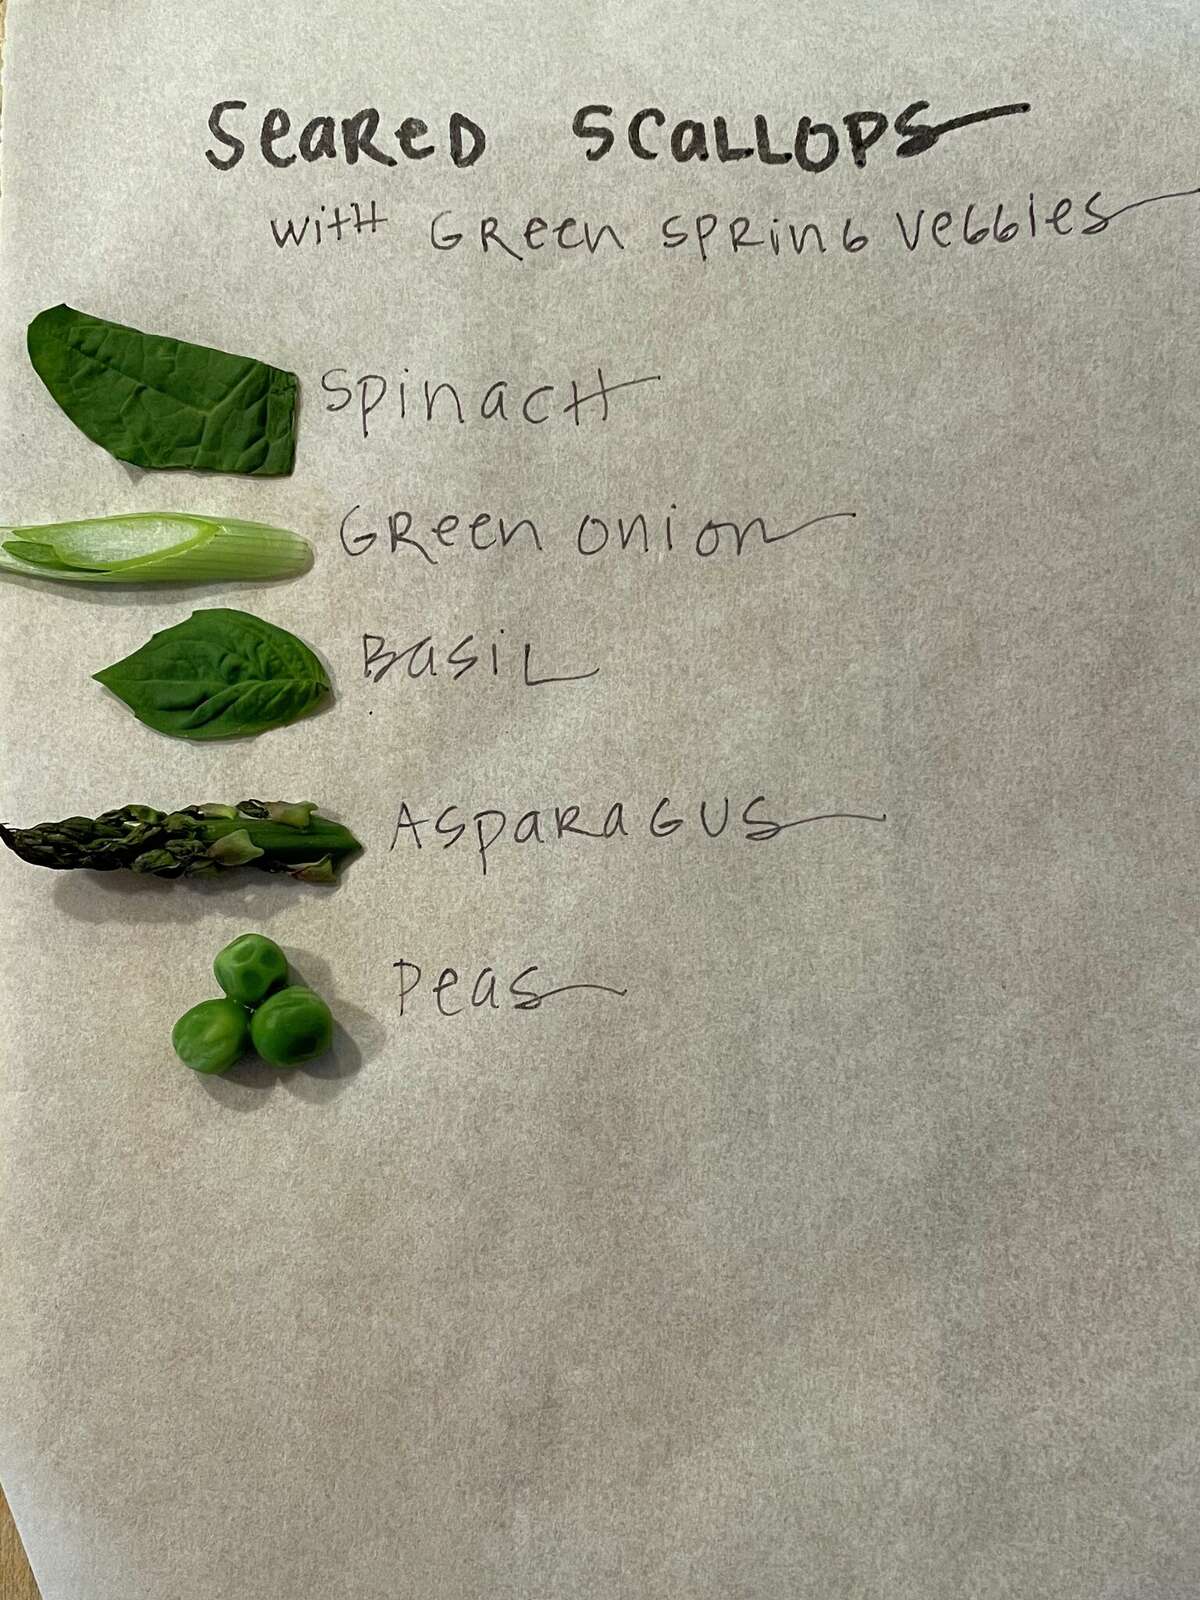 SeaReD SCaLLOPS
WitH GReen SPRinG VeGGIes
SpinacH
GReen Onion
BasiL
AspaRaGUS
Peas